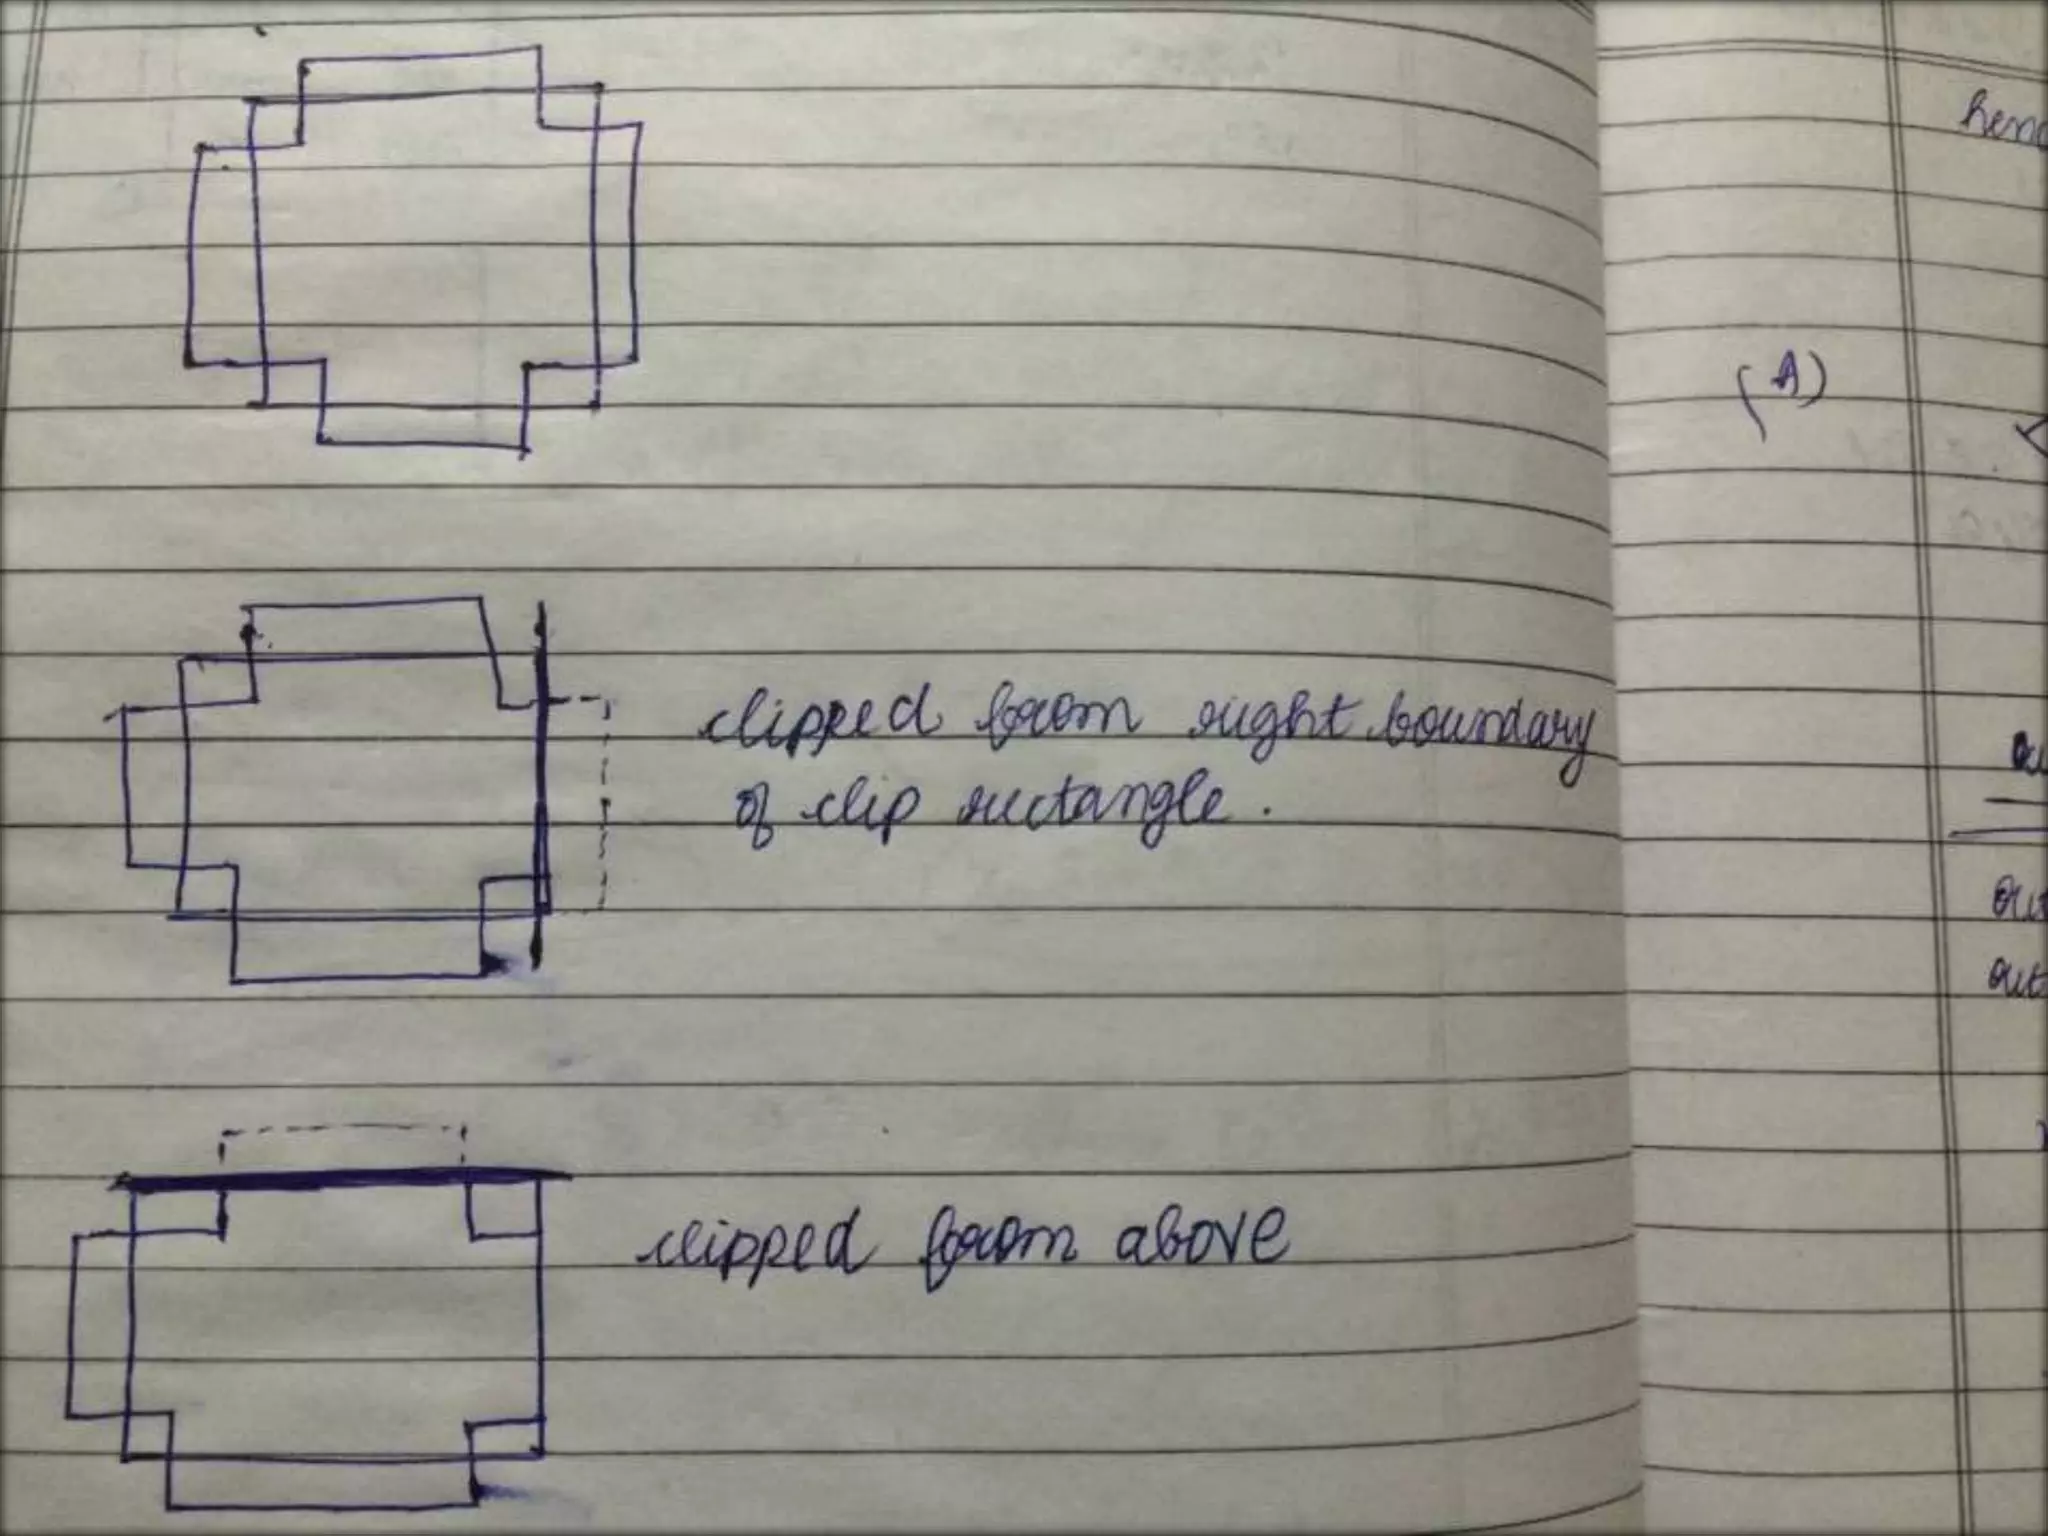 clipped from right boundary
of clip rectangle.
clipped from above
(A)